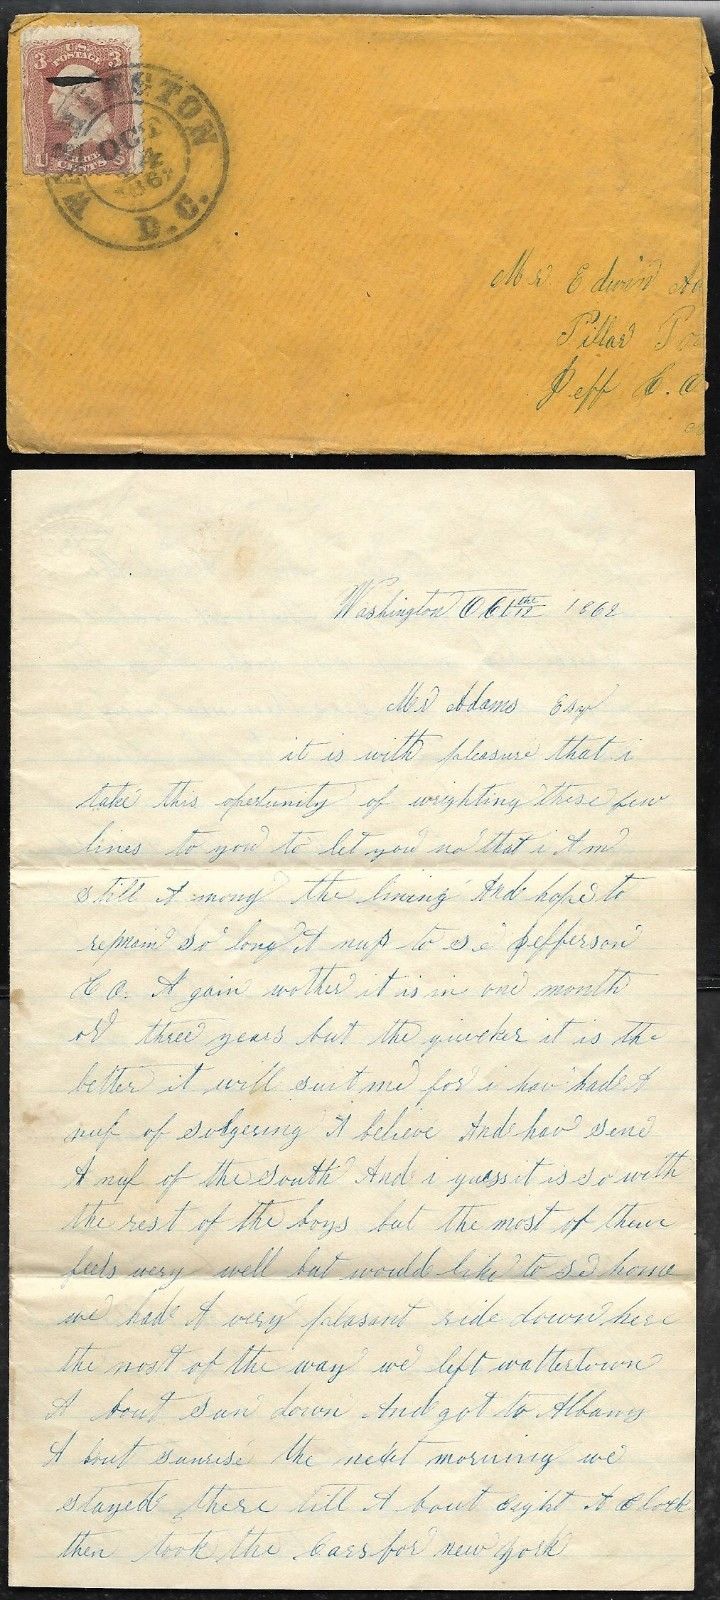 3 U.S. 3
POSTAGE
CENTS
WASHINGTON
OCT
D.C.
Mr Edwin Ad
Pillar Po
Jeff C.O.
Washington Oct the 12 1862
Mr Adams Esq
it is with pleasure that i
take this opertunity of wrighting these few
lines to you to let you no that i Am
still A mong the lining And hope to
remain so long A nuf to se Jefferson
Co. A gain wother it is in one month
or three years but the quicker it is the
better it will suit me for i hav had A
nuf of solgering A believe And hav sene
A nuf of the south And i guess it is so with
the rest of the boys but the most of them
feels very well but would like to se home
we had A very pleasant ride down here
the most of the way we left wattertown
A bout sun down And got to Albany
A bout sunrise the next morning we
stayed there till A bout eight A Clock
then took the Cars for new York